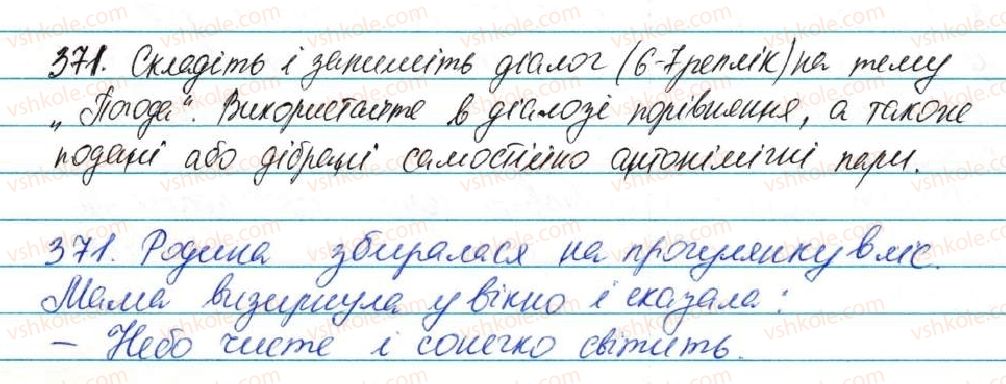 371. Складіть і запишіть діалог (6-7 реплік) на тему
„Погода". Використайте в діалозі порівняння, а також
подані або дібрані самостійно антонімічні пари.
371. Родина збиралася на прогулянку в ліс.
Мама визирнула у вікно і сказала:
– Небо чисте і сонечко світить.